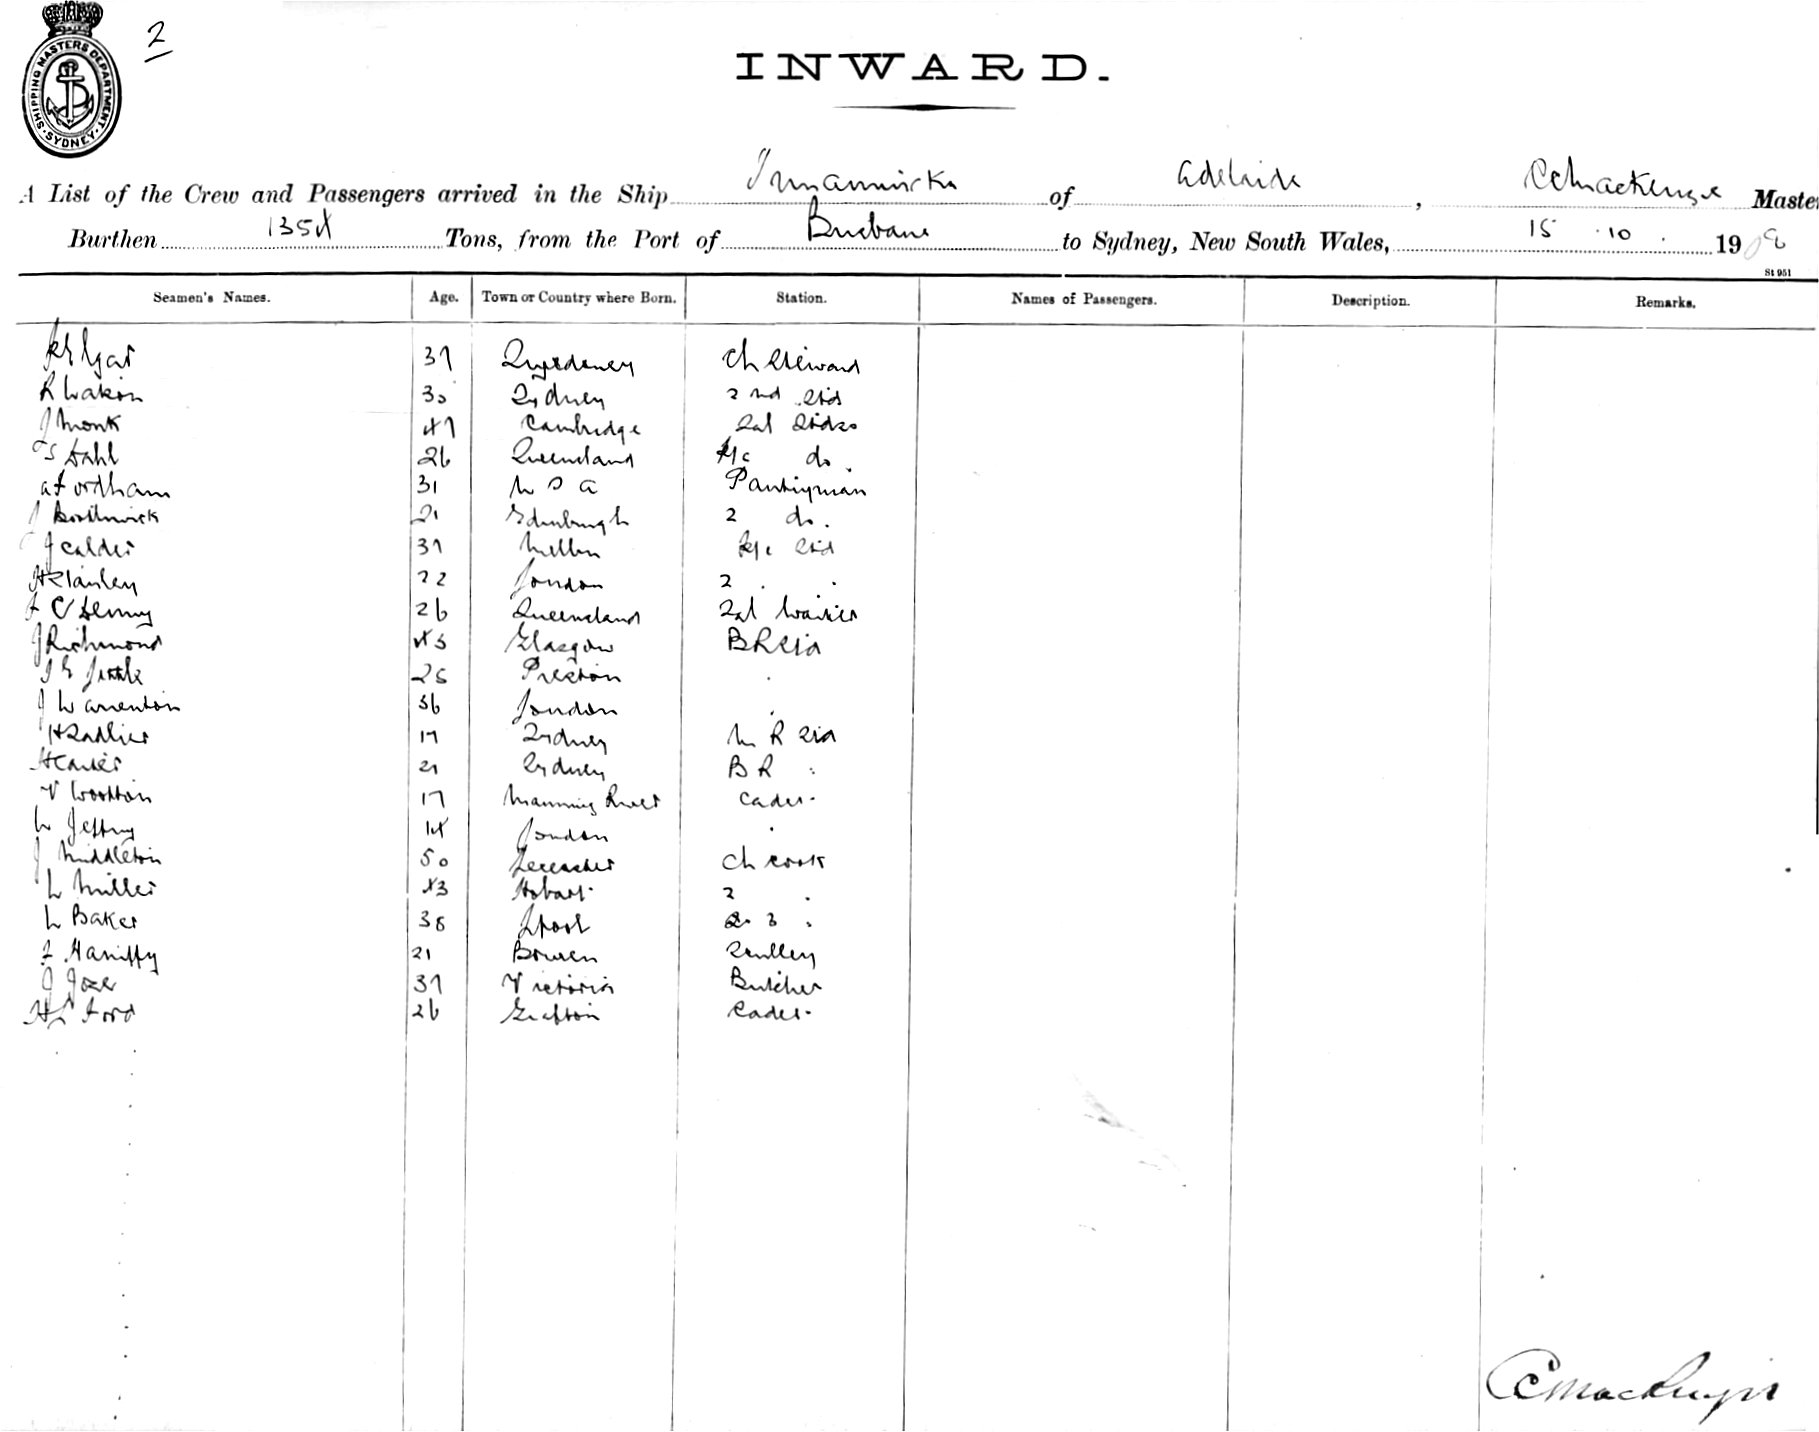 SHIPPING MASTERS DEPARTMENT. SYDNEY.
2
INWARD.
A List of the Crew and Passengers arrived in the Ship Innamincka of Adelaide, C Mackenzie Master
Burthen 1354 Tons, from the Port of Brisbane to Sydney, New South Wales, 15 . 10 . 190
St 951
Seamen's Names. Age. Town or Country where Born. Station. Names of Passengers. Description. Remarks.
37 Ch Steward
R 30 Sydney 2nd Std
J Monk 47 Cambridge Sal Stdss
S Dahl 26 Queensland do.
A Fordham 31 U S A Pantryman
J Borthwick 21 Edinburgh 2 do.
J Calder 37 Melbn Std
H Stanley 22 London 2 . .
F C Denny 26 Queensland Sal Waiter
J Richmond 43 Glasgow B R Std
25 Preston .
J Warrenton 36 London .
H Sadlier 17 Sydney M R Std
H Carter 21 Sydney B R "
V Wootton 17 Manning River Cadet
W Jeffrey 14 London .
J Middleton 50 Leicester Ch Cook
W Miller 43 Hobart 2 .
W Baker 38 Lpool 3 .
F Haniffy 21 Bowen Scullery
J 37 Victoria Butcher
Ford 26 Grafton Cadet
C Mackenzie